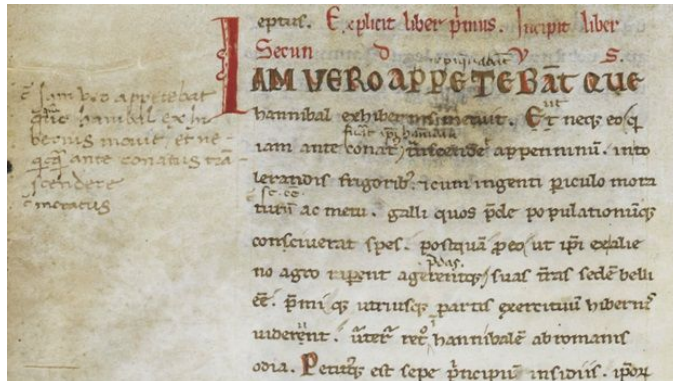 eptus. Explicit liber p̄mus. Incipit liber
Secun d V S.
IAM VERO APPETEBAT QUE
hannibal ex hibernis mouit. Et neqȝ eo qͥ
iam ante conatꝰ tͣnscendē appenninū. into
lerandis frigoribꝰ. ⁊ cum ingenti ꝑiculo mora
tum ac metu. galli quos p̄de populationūqȝ
consciuerat spes. postquā ꝓ eo, ut ip̄i ex alie
no agro raperent agerentqȝ, suas t̄ras sedē belli
eē. p̄mi qȝ utriusqȝ partis exercituū hibernis
uiderent. uert͛ retͦ, hannibalē ab romanis
odia. Petitusqȝ est sepe p̄ncipum insidiis. ipsoꝝ
Iam uero appetebat
hanibal ex hi
bernis mouit, et ne-
qͥcqͣ ante conatus trā-
scendere
moratus